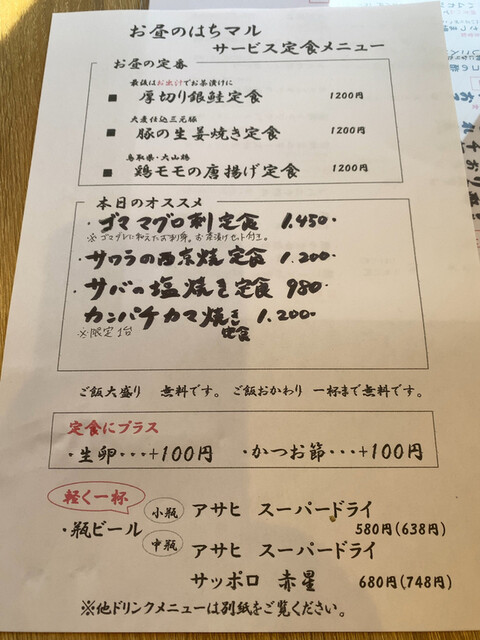 お昼のはちマル
サービス定食メニュー
お昼の定番
最後はお出汁でお茶漬けに
■ 厚切り銀鮭定食 1200円
大麦仕込三元豚
■ 豚の生姜焼き定食 1200円
鳥取県・大山鶏
■ 鶏モモの唐揚げ定食 1200円
本日のオススメ
・ゴママグロ刺定食 1.450-
※ゴマダレに和えたお刺身。お茶漬けセット付き。
・サワラの西京焼定食 1.200-
・サバの塩焼き定食 980-
カンパチカマ焼き定食 1.200-
※限定1台
ご飯大盛り 無料です。 ご飯おかわり 一杯まで無料です。
定食にプラス
・生卵・・・+100円 ・かつお節・・・+100円
軽く一杯
・瓶ビール
小瓶 アサヒ スーパードライ
580円(638円)
中瓶 アサヒ スーパードライ
サッポロ 赤星 680円(748円)
※他ドリンクメニューは別紙をご覧ください。